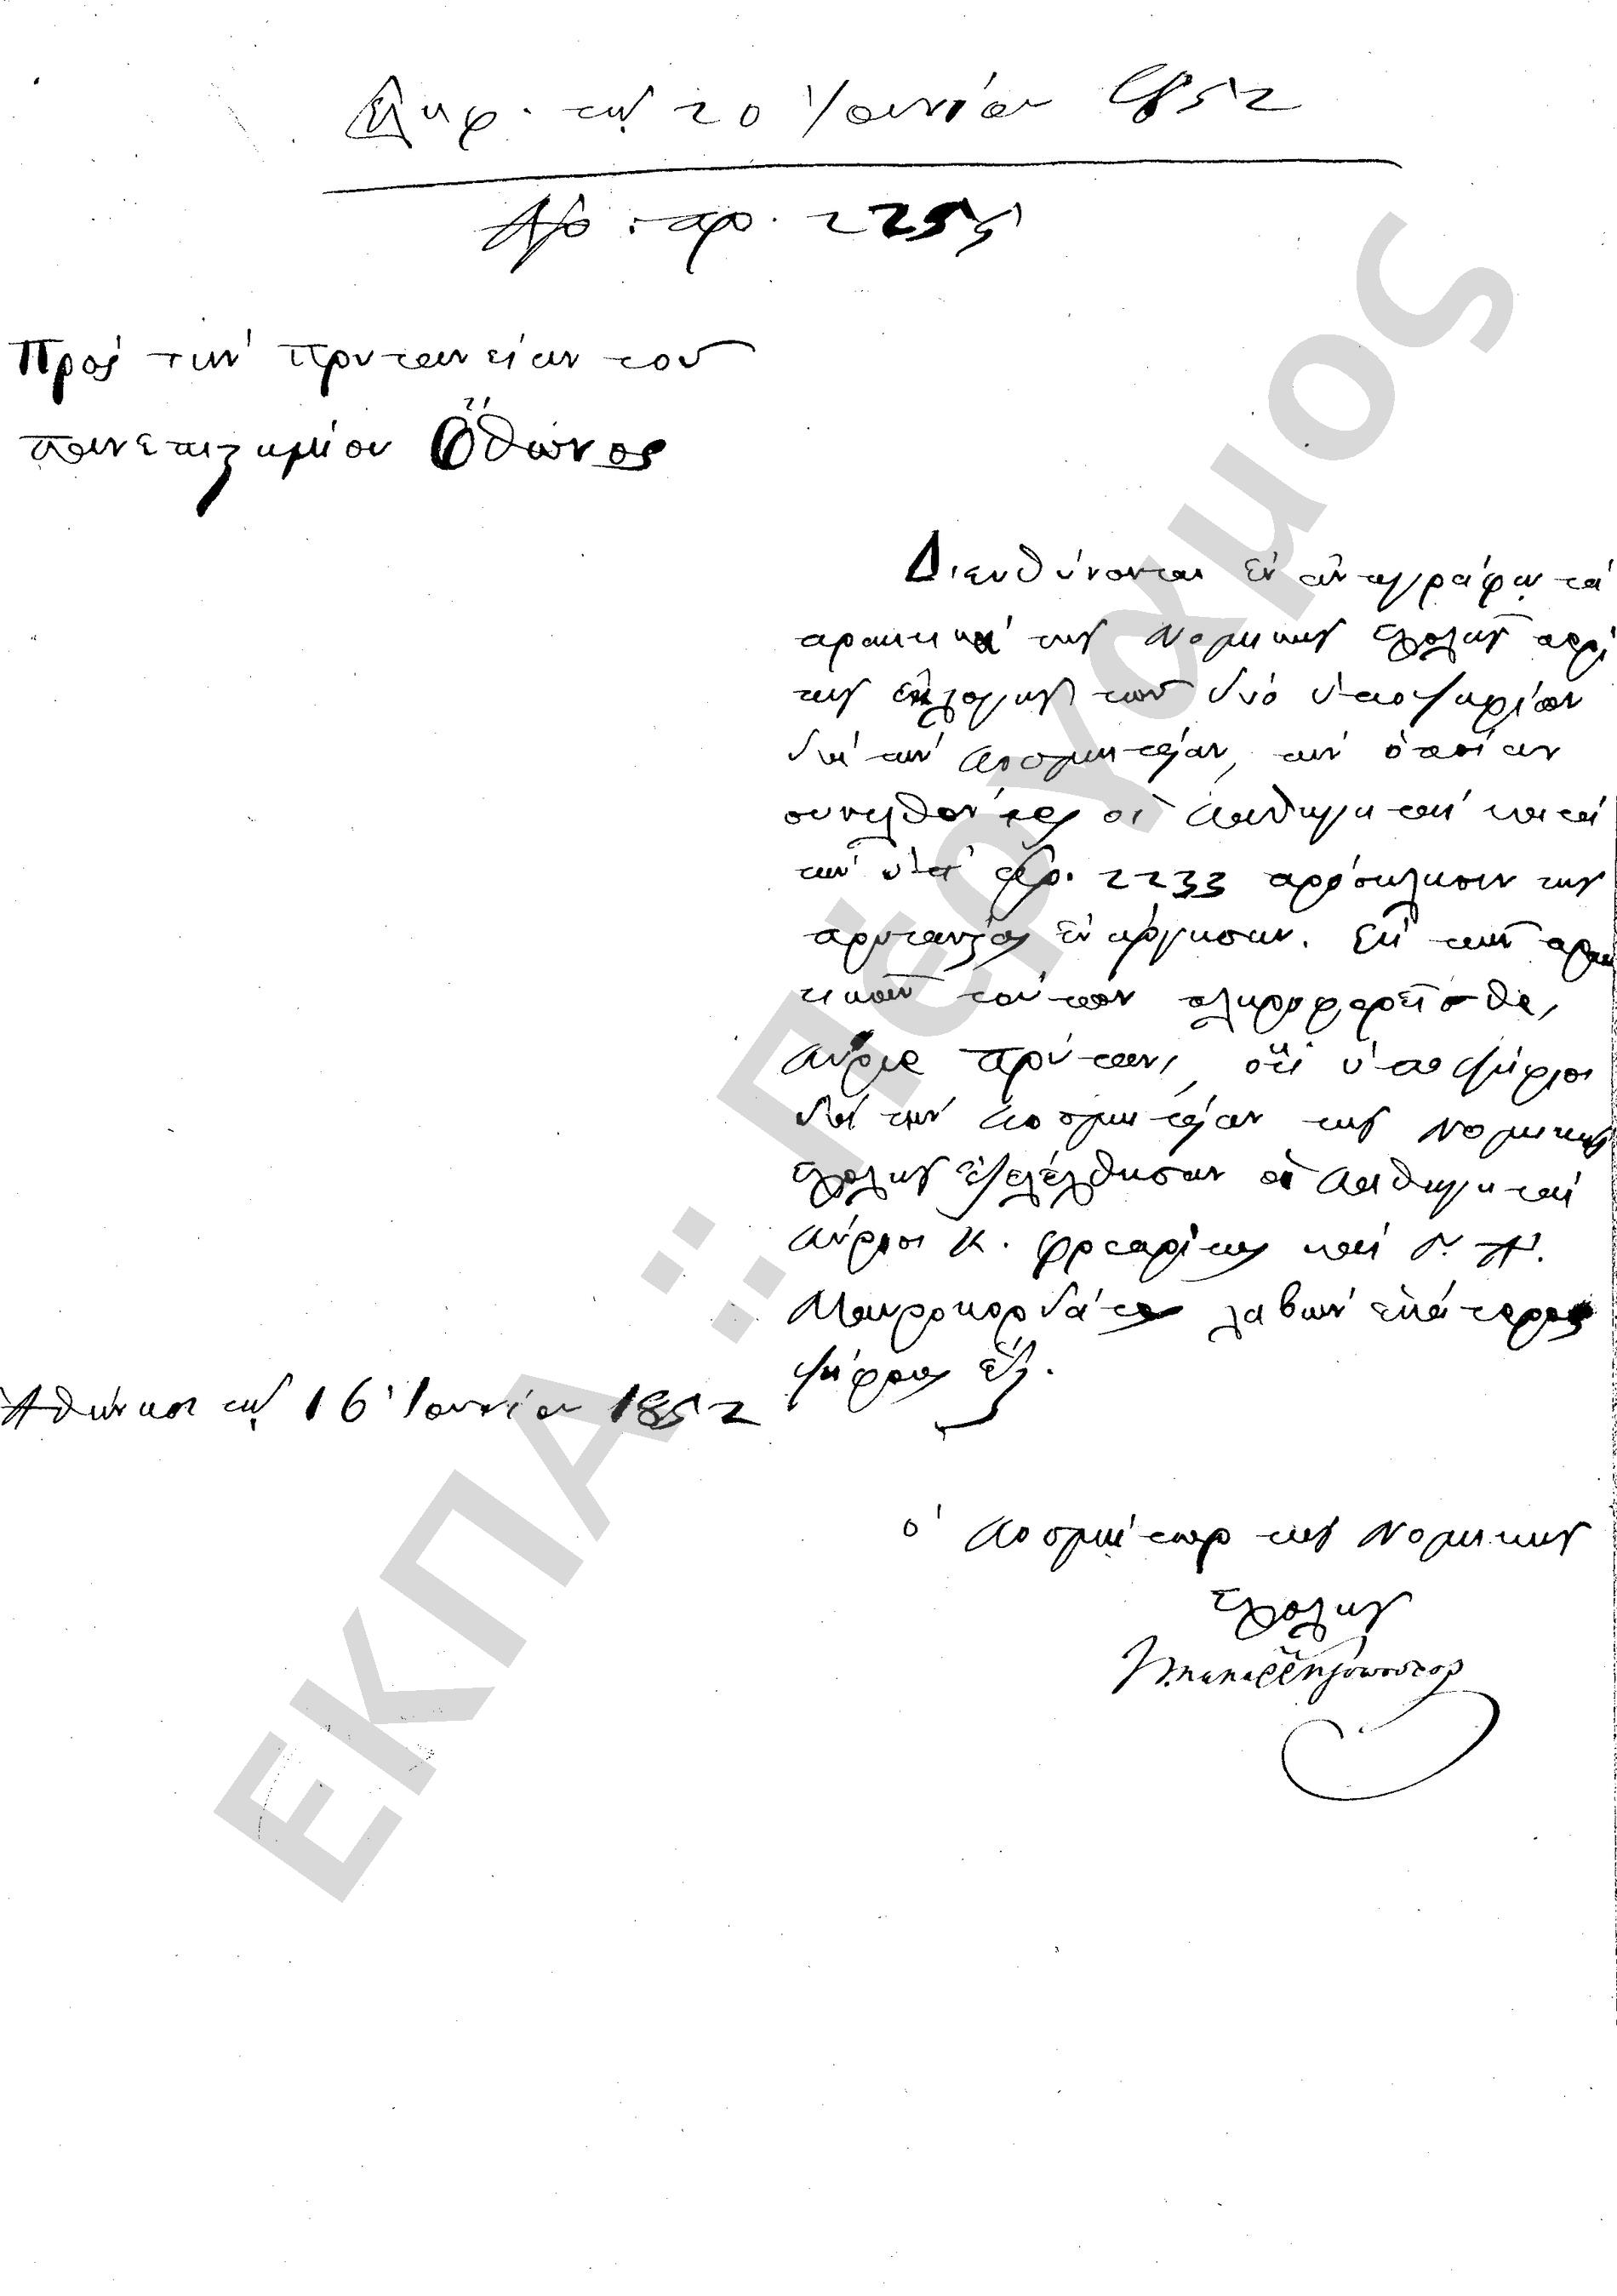 Ἐλήφ. τῇ 20 Ἰουνίου 1852
Ἀρ. πρ. 2255
Πρὸς τὴν Πρυτανείαν τοῦ
πανεπιστημίου Ὄθωνος
Διευθύνονται ἐν ἀντιγράφῳ τὰ
πρακτικὰ τῆς Νομικῆς Σχολῆς περὶ
τῆς ἐκλογῆς τῶν δύο ὑποψηφίων
διὰ τὴν Κοσμητείαν, τὴν ὁποίαν
συνελθόντες οἱ Καθηγηταὶ κατὰ
τὴν ὑπ' ἀρ. 2233 πρόσκλησιν τῆς
πρυτανείας ἐνήργησαν. Ἐκ τῶν πρακ
τικῶν τούτων πληροφορεῖσθε,
Κύριε Πρύτανι, ὅτι ὑποψήφιοι
διὰ τὴν Κοσμητείαν τῆς Νομικῆς
Σχολῆς ἐξελέχθησαν οἱ Καθηγηταὶ
Κύριοι Κ. Φρεαρίτης καὶ Γ. Ἀ.
Μαυροκορδάτος λαβὼν ἑκάτερος
ψήφους ἕξ.
Ἀθήνησι τῇ 16 Ἰουνίου 1852
ὁ Κοσμήτωρ τῆς Νομικῆς
Σχολῆς
ΕΚΠΑ :: Πέργαμος